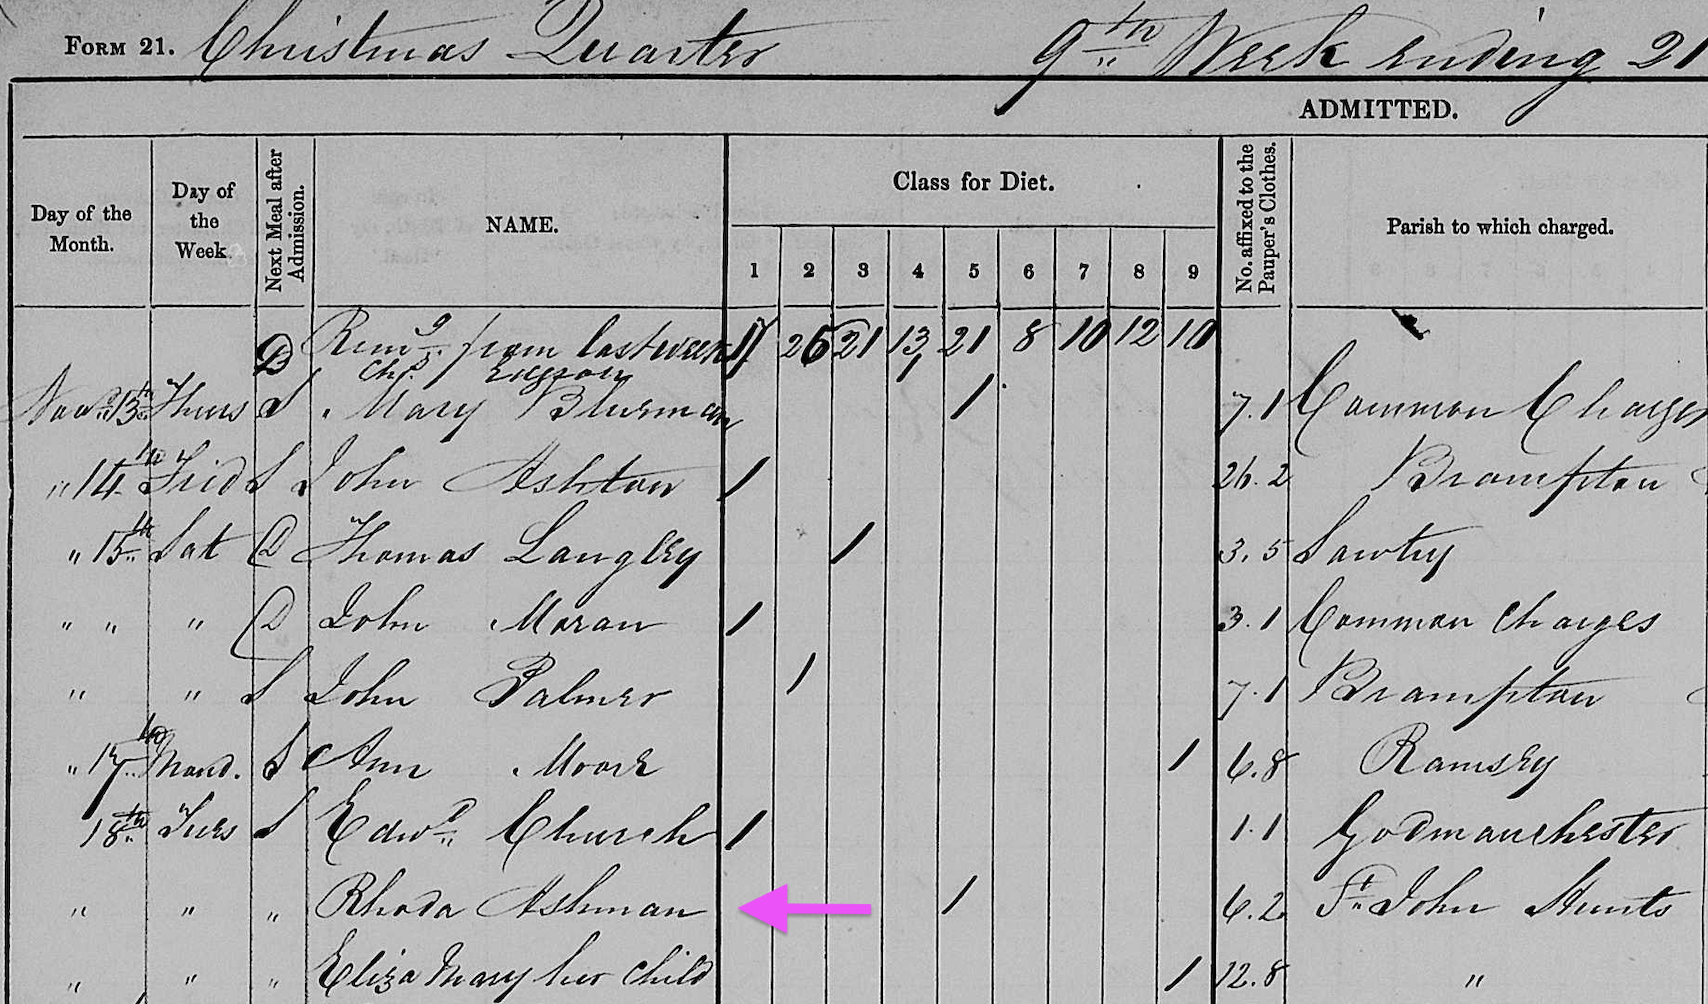 FORM 21. Christmas Quarter 9th Week ending 21
ADMITTED.
Day of the Month. Day of the Week. Next Meal after Admission. NAME. Class for Diet. No. affixed to the Pauper's Clothes. Parish to which charged.
1 2 3 4 5 6 7 8 9
B Remg. from last week 26 21 13 21 8 10 12 10
Novr 13th Thurs S Mary 1 7.1 Common Charges
" 14th Frid S John Ashton 1 26.2 Brampton
" 15th Sat D Thomas Langley 1 3.5 Sawtry
" " " D John Moran 1 3.1 Common Charges
" " S John Palmer 1 7.1 Brampton
" 17th Mond. S Ann Moore 1 6.8 Ramsey
18th Tues S Edwd. Church 1 1.1 Godmanchester
" " " Rhoda Ashman 1 6.2 St. John Hunts
" " " Eliza Mary her child 1 12.8 "